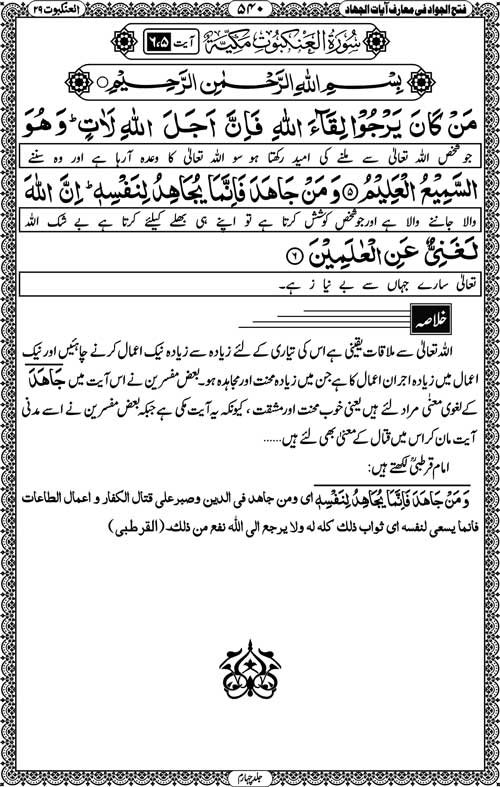 فتح الجواد فی معارف آیات الجهاد ۵۴۰ العنکبوت ۲۹
سُوْرَۃُ الْعَنْکَبُوْتِ مَکِّیَّۃٌ آیت ۶،۵
بِسْمِ اللهِ الرَّحْمٰنِ الرَّحِیْمِ
مَنْ کَانَ یَرْجُوْا لِقَآءَ اللهِ فَاِنَّ اَجَلَ اللهِ لَاٰتٍ ؕ وَهُوَ
جو شخص اللہ تعالیٰ سے ملنے کی امید رکھتا ہو سو اللہ تعالیٰ کا وعدہ آرہا ہے اور وہ سننے
السَّمِیْعُ الْعَلِیْمُ ﴿۵﴾ وَمَنْ جَاهَدَ فَاِنَّمَا یُجَاهِدُ لِنَفْسِهٖ ؕ اِنَّ اللهَ
والا جاننے والا ہے اور جو شخص کوشش کرتا ہے تو اپنے ہی بھلے کیلئے کرتا ہے بے شک اللہ
لَغَنِیٌّ عَنِ الْعٰلَمِیْنَ ﴿۶﴾
تعالیٰ سارے جہاں سے بے نیاز ہے۔
خلاصہ
اللہ تعالیٰ سے ملاقات یقینی ہے اس کی تیاری کے لئے زیادہ سے زیادہ نیک اعمال کرنے چاہئیں اور نیک
اعمال میں زیادہ اجر ان اعمال کا ہے جن میں زیادہ محنت اور مجاہدہ ہو۔ بعض مفسرین نے اس آیت میں جَاهَدَ
کے لغوی معنیٰ مراد لئے ہیں یعنی خوب محنت اور مشقت، کیونکہ یہ آیت مکی ہے جبکہ بعض مفسرین نے اسے مدنی
آیت مان کر اس میں قتال کے معنیٰ بھی لئے ہیں......
امام قرطبیؒ لکھتے ہیں:
وَمَنْ جَاهَدَ فَاِنَّمَا یُجَاهِدُ لِنَفْسِهٖ ای ومن جاهد فی الدین وصبر علی قتال الکفار و اعمال الطاعات
فانما یسعی لنفسه ای ثواب ذلك کله له ولا یرجع الی الله نفع من ذلك۔ (القرطبی)
جلد چہارم